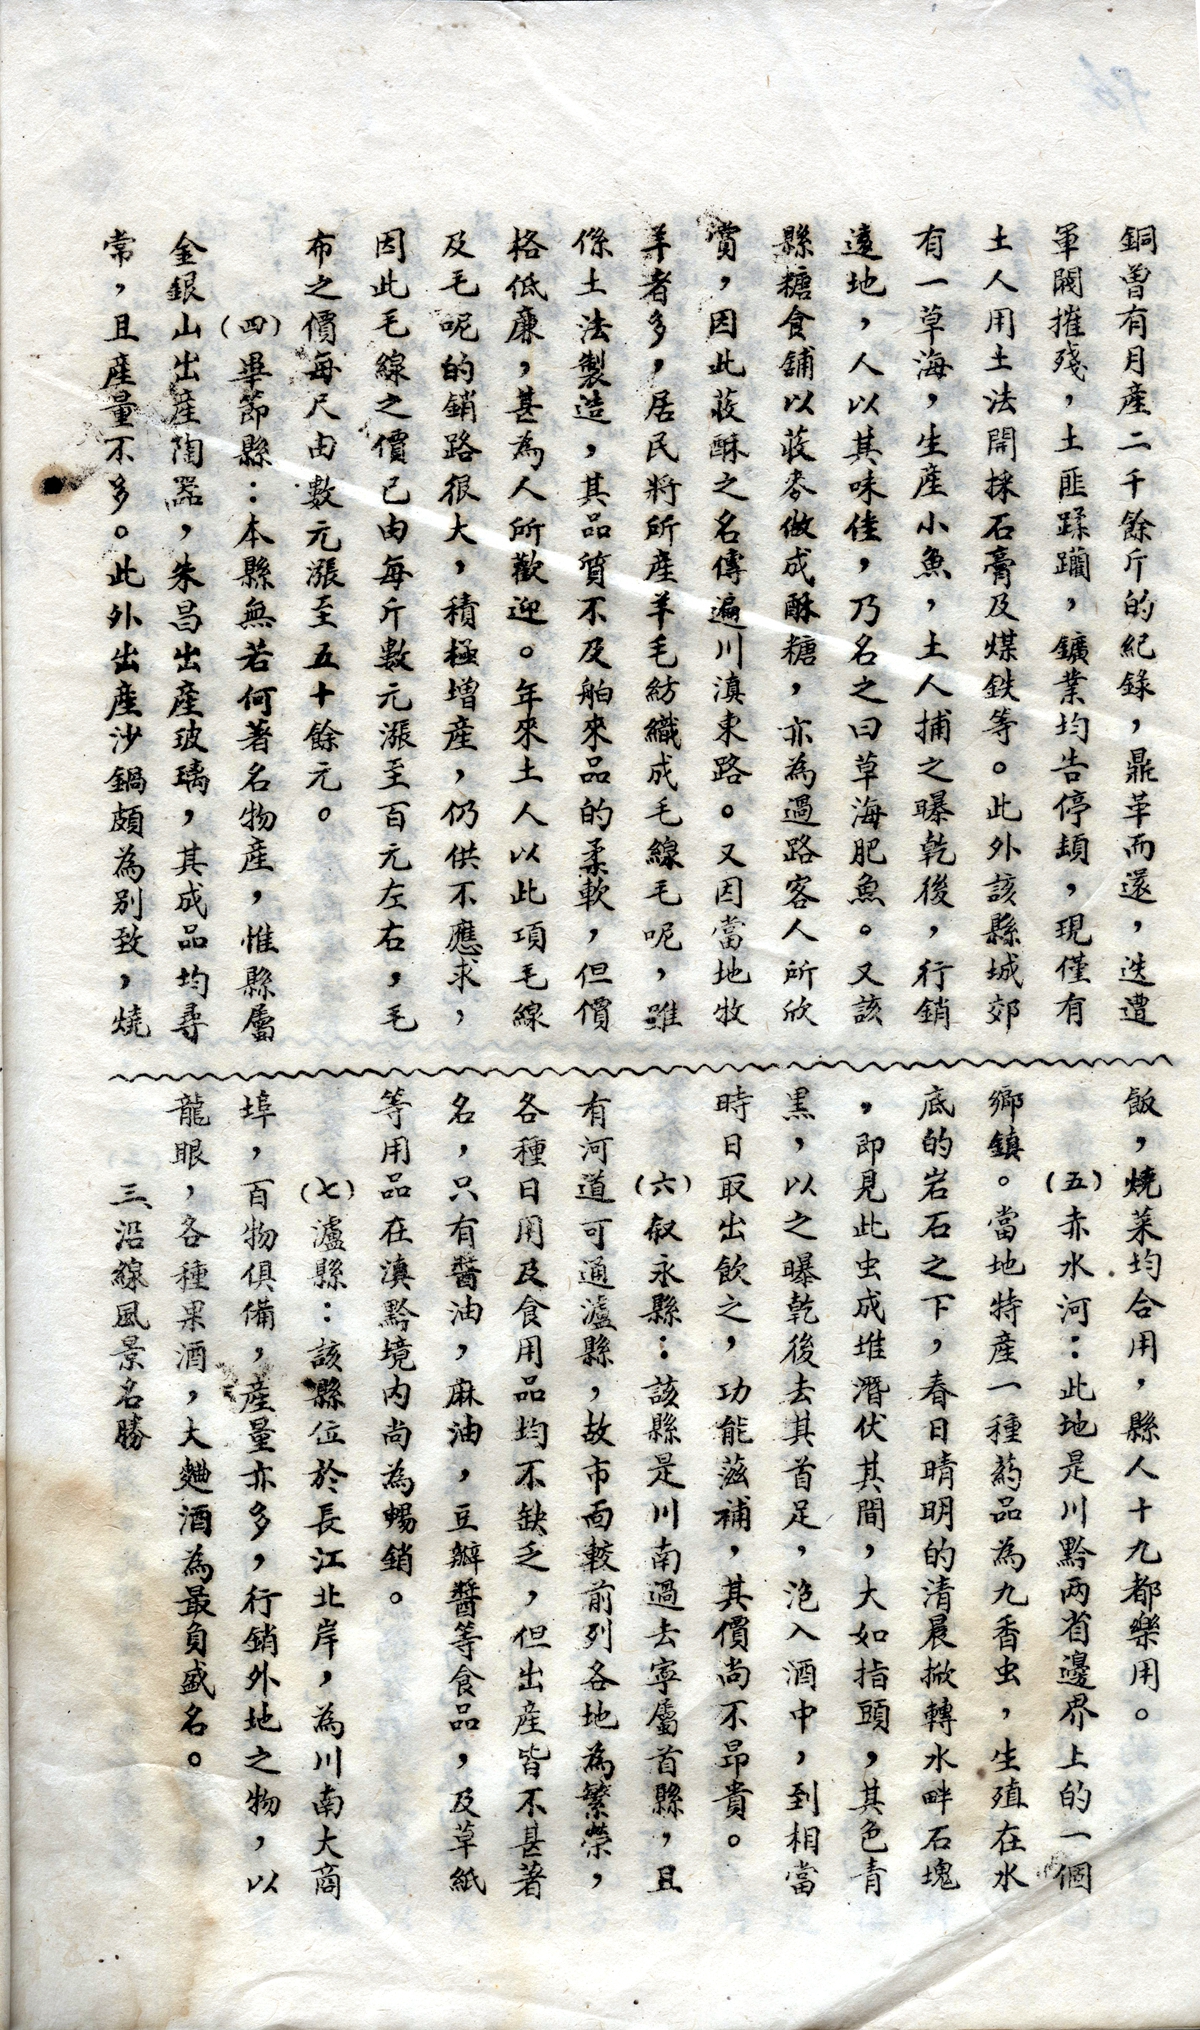 銅曾有月產二千餘斤的紀錄，鼎革而還，迭遭
軍閥摧殘，土匪蹂躪，鑛業均告停頓，現僅有
土人用土法開採石膏及煤鉄等。此外該縣城郊
有一草海，生產小魚，土人捕之曝乾後，行銷
遠地，人以其味佳，乃名之曰草海肥魚。又該
縣糖食舖以蓰麥做成酥糖，亦為過路客人所欣
賞，因此蓰酥之名傳遍川滇東路。又因當地牧
羊者多，居民將所產羊毛紡織成毛線毛呢，雖
係土法製造，其品質不及舶來品的柔軟，但價
格低廉，甚為人所歡迎。年來土人以此項毛線
及毛呢的銷路很大，積極增產，仍供不應求，
因此毛線之價已由每斤數元漲至百元左右，毛
布之價每尺由數元漲至五十餘元。
(四)畢節縣：本縣無若何著名物產，惟縣屬
金銀山出產陶器，朱昌出產玻璃，其成品均尋
常，且產量不多。此外出產沙鍋頗為別致，燒
飯，燒菜均合用，縣人十九都樂用。
(五)赤水河：此地是川黔两省邊界上的一個
鄉鎮。當地特產一種药品為九香虫，生殖在水
底的岩石之下，春日晴明的清晨掀轉水畔石塊
，即見此虫成堆潛伏其間，大如指頭，其色青
黑，以之曝乾後去其首足，泡入酒中，到相當
時日取出飲之，功能滋補，其價尚不昂貴。
(六)叙永縣：該縣是川南過去寧屬首縣，且
有河道可通瀘縣，故市面較前列各地為繁榮，
各種日用及食用品均不缺乏，但出產皆不甚著
名，只有醬油，麻油，豆瓣醬等食品，及草紙
等用品在滇黔境内尚為暢銷。
(七)瀘縣：該縣位於長江北岸，為川南大商
埠，百物俱備，產量亦多，行銷外地之物，以
龍眼，各種果酒，大麯酒為最負盛名。
三、沿線風景名勝